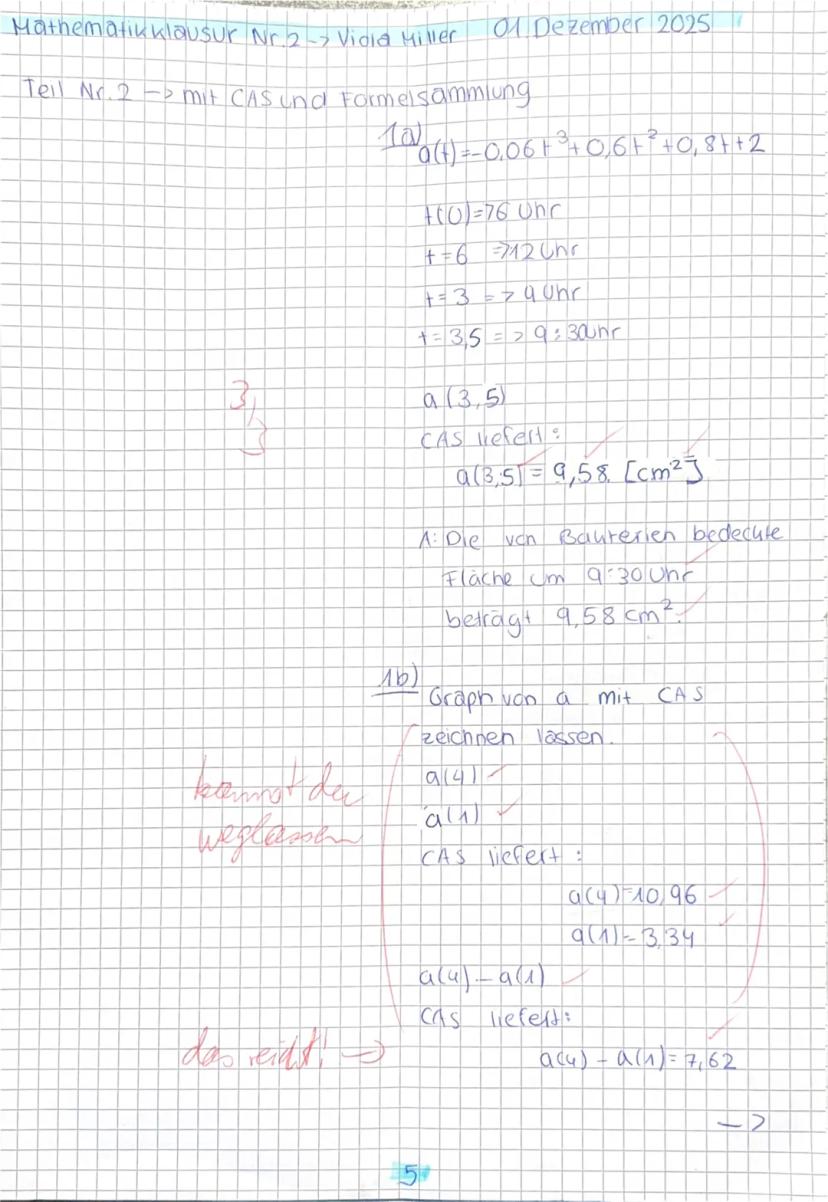 Mathematikklausur Nr.2 -> Viola Miller 01 Dezember 2025
Teil Nr. 2 -> mit CAS und Formelsammlung
1a)
a(t)=-0,06t³+0,6t²+0,8t+2
t(0)=>6 Uhr
t=6 =>12 Uhr
t=3 => 9 Uhr
t=3,5 => 9:30Uhr
3/3
a(3,5)
CAS liefert:
a(3,5)=9,58 [cm²]
A: Die von Bakterien bedeckte
Fläche um 9:30 Uhr
beträgt 9,58 cm².
1b)
Graph von a mit CAS
zeichnen lassen.
kannst du
weglassen
a(4)
a(1)
CAS liefert:
a(4)=10,96
a(1)=3,34
a(4)-a(1)
CAS liefert:
das reicht! ->
a(4)-a(1)=7,62
->
5